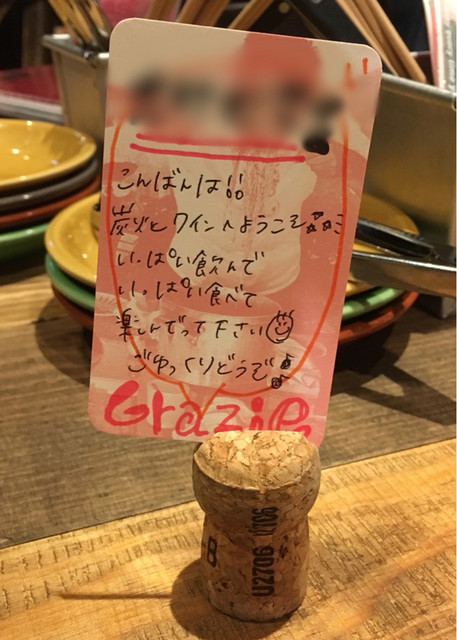 こんばんは!!
炭火とワインへようこそ
いっぱい飲んで
いっぱい食べて
楽しんでって下さい
ごゆっくりどうぞ♪
Grazie
U2706